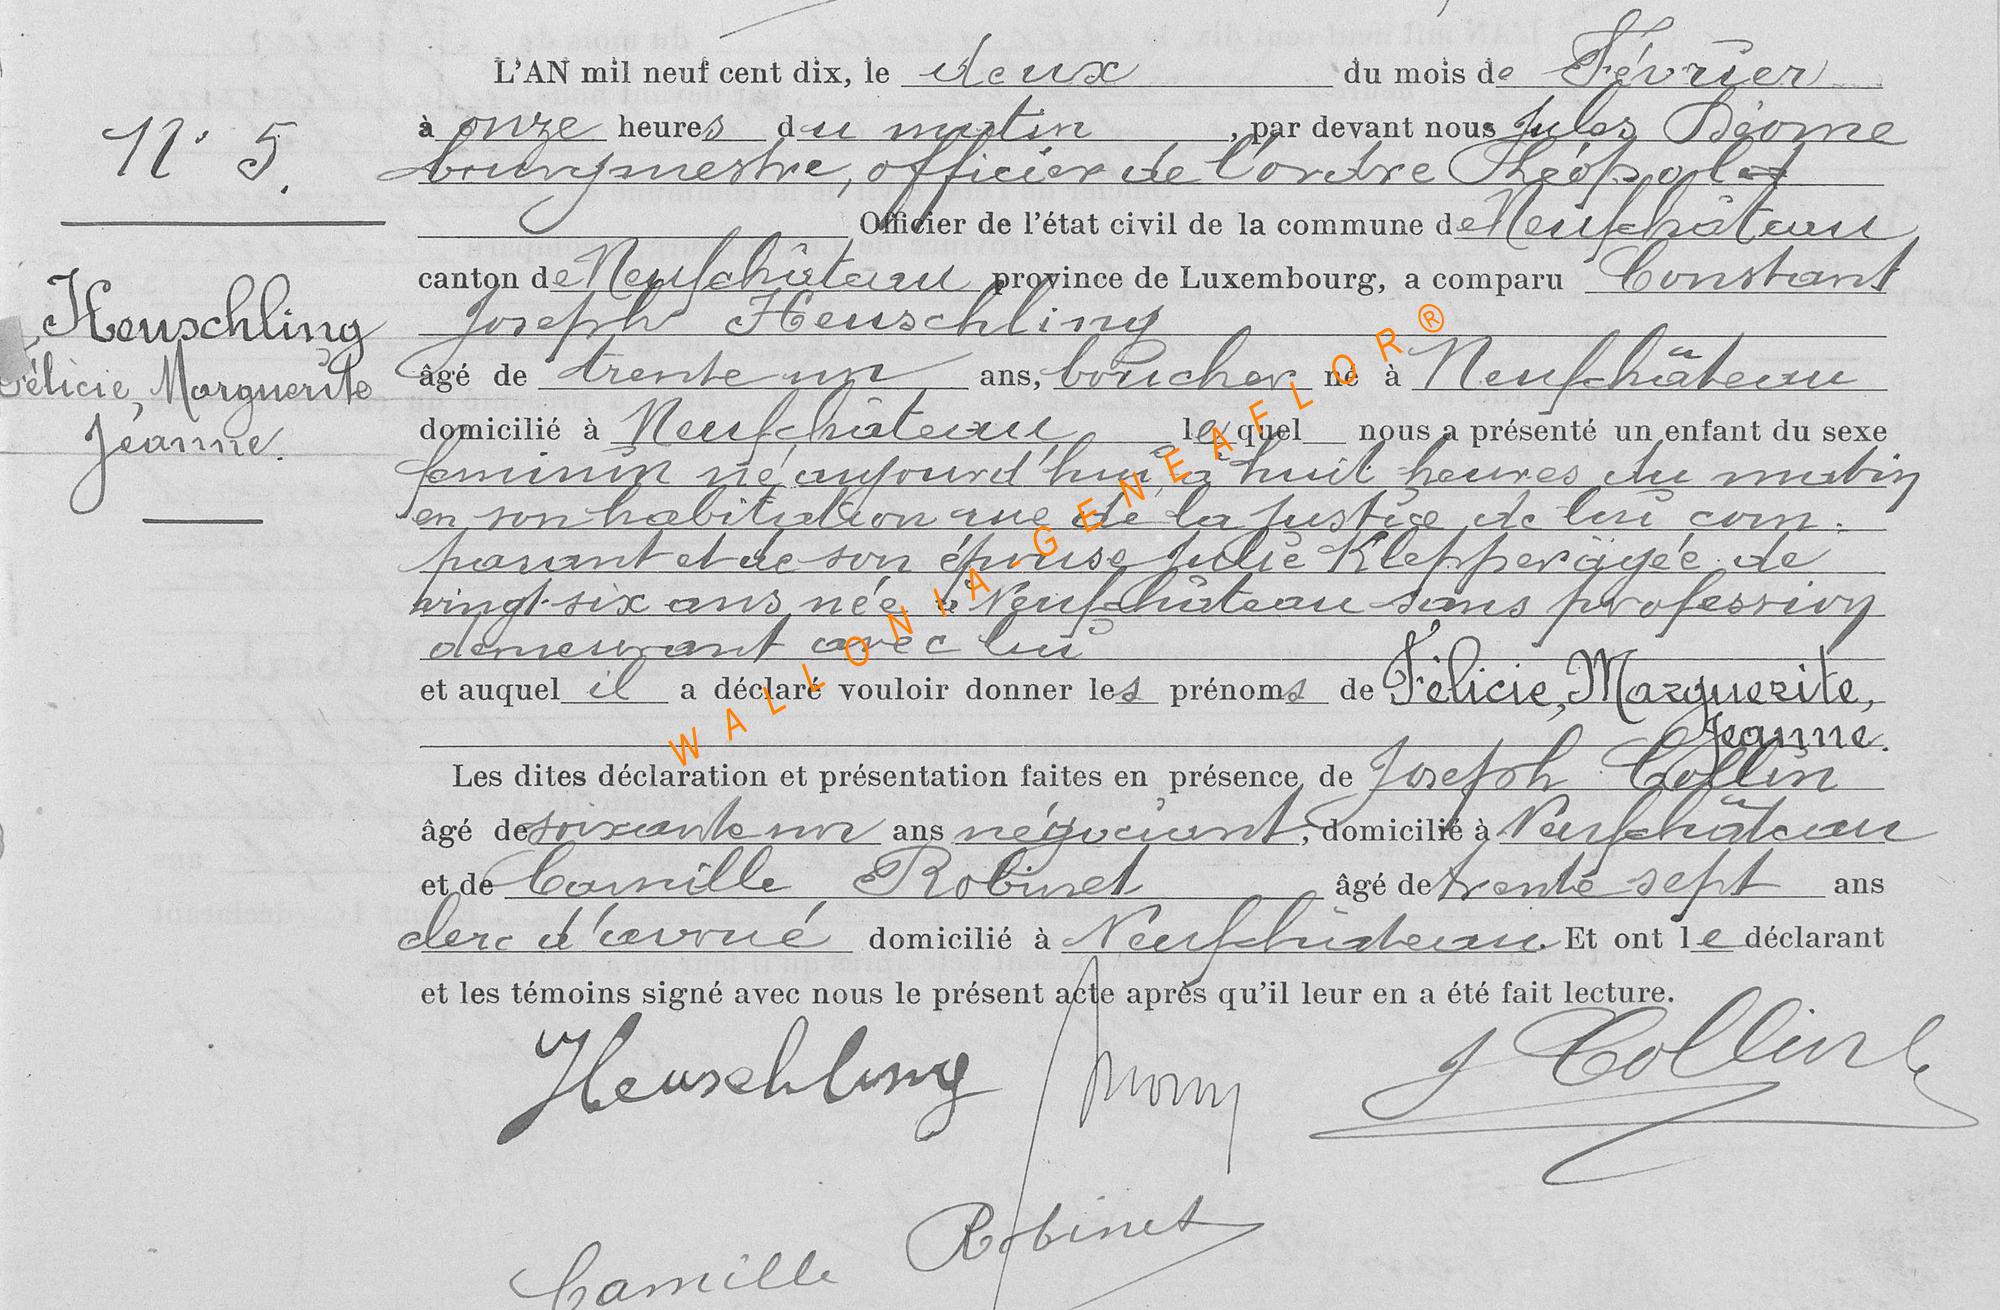 N° 5.
Heuschling
Félicie, Marguerite
Jeanne.
L'AN mil neuf cent dix, le deux du mois de Février
à onze heures du matin, par devant nous Jules
bourgmestre, officier de l'ordre Léopold
Officier de l'état civil de la commune de Neufchâteau
canton de Neufchâteau province de Luxembourg, a comparu Constant
Joseph Heuschling
âgé de trente un ans, boucher né à Neufchâteau
domicilié à Neufchâteau lequel nous a présenté un enfant du sexe
feminin né aujourd'hui, à huit heures du matin
en son habitation rue de la Justice, de lui com-
parant et de son épouse Julie Klepper âgée de
vingt-six ans née à Neufchâteau sans profession
demeurant avec lui
et auquel il a déclaré vouloir donner les prénoms de Félicie, Marguerite,
Jeanne.
Les dites déclaration et présentation faites en présence de Joseph Collin
âgé de soixante un ans négociant, domicilié à Neufchâteau
et de Camille Robinet âgé de trente sept ans
clerc d'avoué domicilié à Neufchâteau. Et ont le déclarant
et les témoins signé avec nous le présent acte après qu'il leur en a été fait lecture.
Heuschling
J Collin
Camille Robinet
WALLONIA-GENEAFLOR®